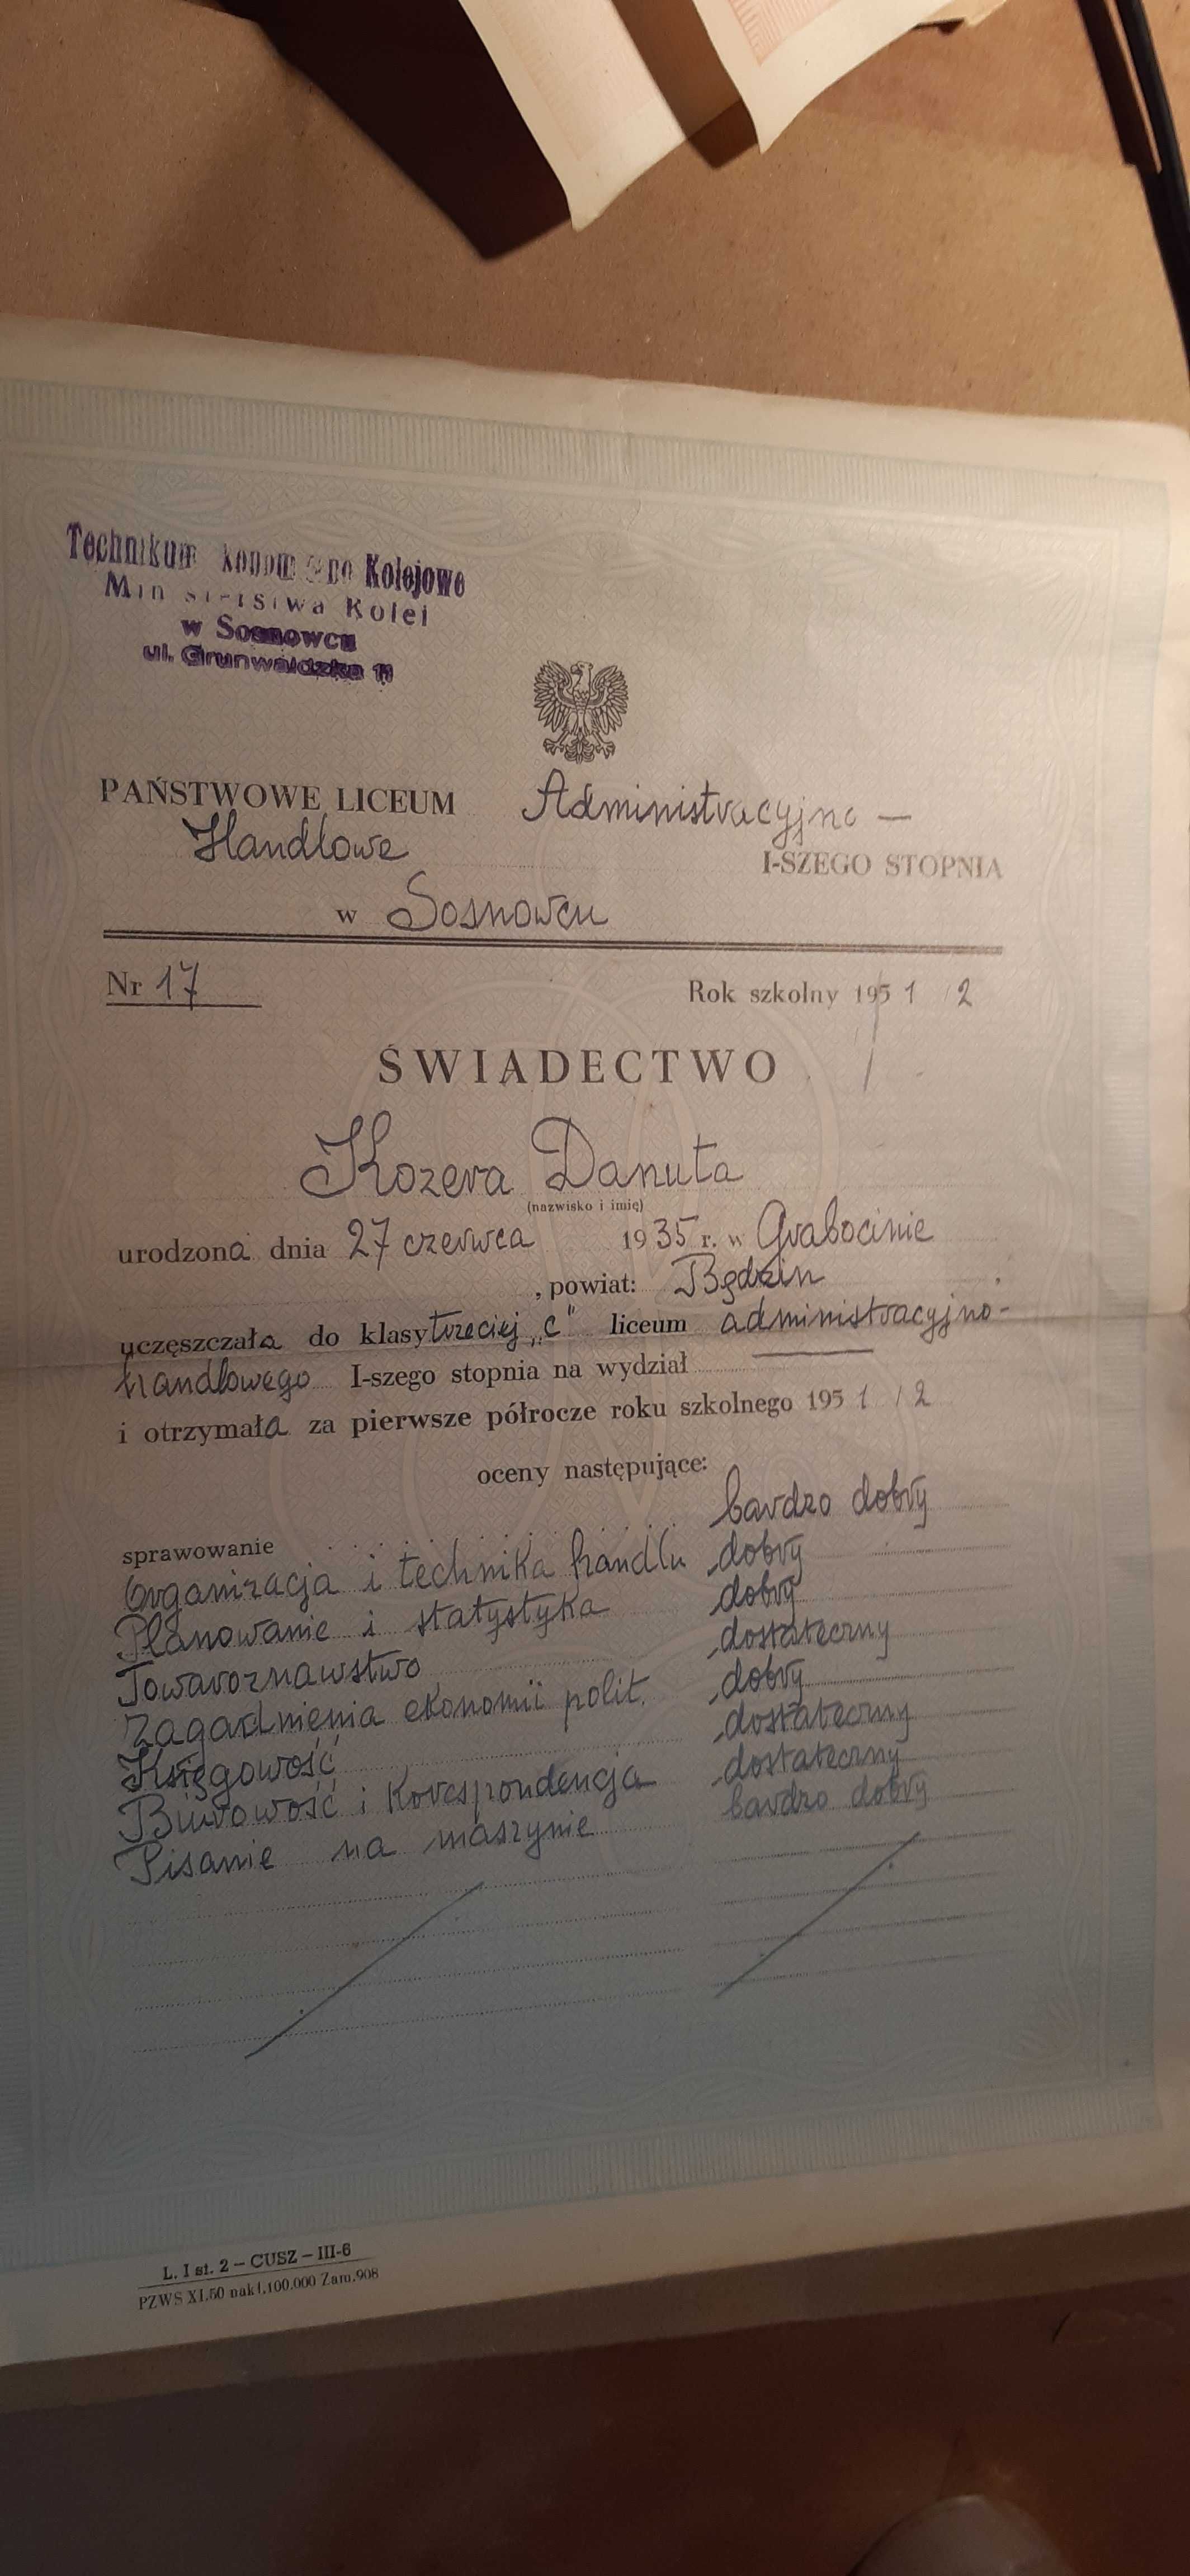 Technikum Kolejowe
Ministerstwa Kolei
w Sosnowcu
ul. Grunwaldzka 11
PAŃSTWOWE LICEUM Administracyjno —
Handlowe
I-SZEGO STOPNIA
w Sosnowcu
Nr 17 Rok szkolny 1951/2
ŚWIADECTWO
Kozera Danuta
(nazwisko i imię)
urodzona dnia 27 czerwca 1935 r. w Grabocinie
, powiat: Będzin
uczęszczała do klasy trzeciej „c" liceum administracyjno-
handlowego I-szego stopnia na wydział ———
i otrzymała za pierwsze półrocze roku szkolnego 1951/2
oceny następujące:
sprawowanie bardzo dobry
Organizacja i technika handlu dobry
Planowanie i statystyka dobry
Towaroznawstwo dostateczny
Zagadnienia ekonomii polit. dobry
Księgowość dostateczny
Biurowość i korespondencja dostateczny
Pisanie na maszynie bardzo dobry
L. I st. 2 – CUSZ – III-6
PZWS XI.50 nakł.100.000 Zam.908